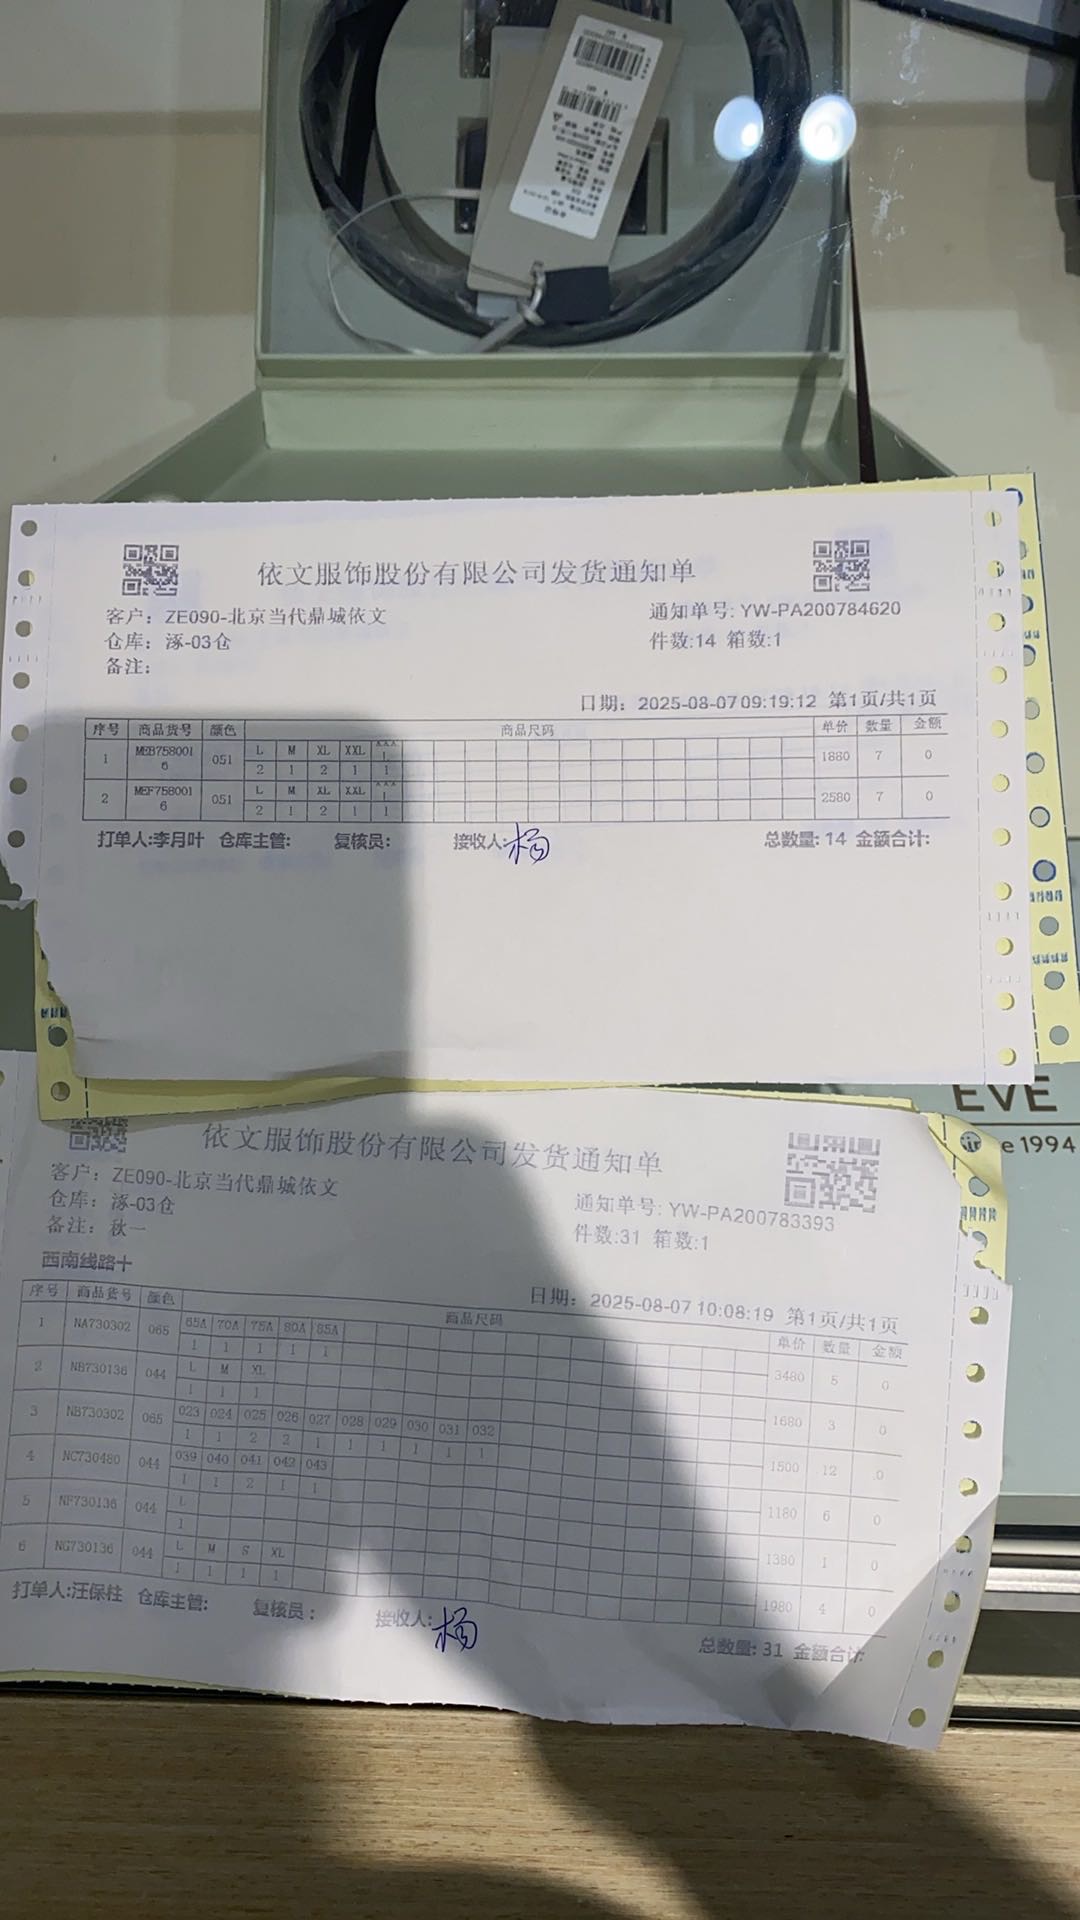 依文服饰股份有限公司发货通知单
客户： ZE090-北京当代鼎城依文
通知单号: YW-PA200784620
仓库： 涿-03仓
件数:14 箱数:1
备注：
日期： 2025-08-07 09:19:12 第1页/共1页
序号 商品货号 颜色 商品尺码 单价 数量 金额
1 MEB7580016 051 L M XL XXL XXXL 1880 7 0
2 1 2 1 1
2 MEF7580016 051 L M XL XXL XXXL 2580 7 0
2 1 2 1 1
打单人:李月叶 仓库主管: 复核员: 接收人: 杨 总数量: 14 金额合计:
EVE
Since 1994
依文服饰股份有限公司发货通知单
客户： ZE090-北京当代鼎城依文
通知单号: YW-PA200783393
仓库： 涿-03仓
件数:31 箱数:1
备注： 秋一
西南线路十
日期： 2025-08-07 10:08:19 第1页/共1页
序号 商品货号 颜色 商品尺码 单价 数量 金额
1 NA730302 065 65A 70A 75A 80A 85A 3480 5 0
1 1 1 1 1
2 NB730136 044 L M XL 1680 3 0
1 1 1
3 NB730302 065 023 024 025 026 027 028 029 030 031 032 1500 12 0
1 1 2 2 1 1 1 1 1 1
4 NC730480 044 039 040 041 042 043 1180 6 0
1 1 2 1 1
5 NF730136 044 L 1380 1 0
1
6 NG730136 044 L M S XL 1980 4 0
1 1 1 1
打单人:汪保柱 仓库主管: 复核员: 接收人: 杨 总数量: 31 金额合计: